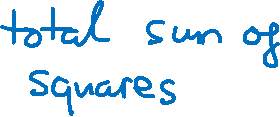 total sum of
squares